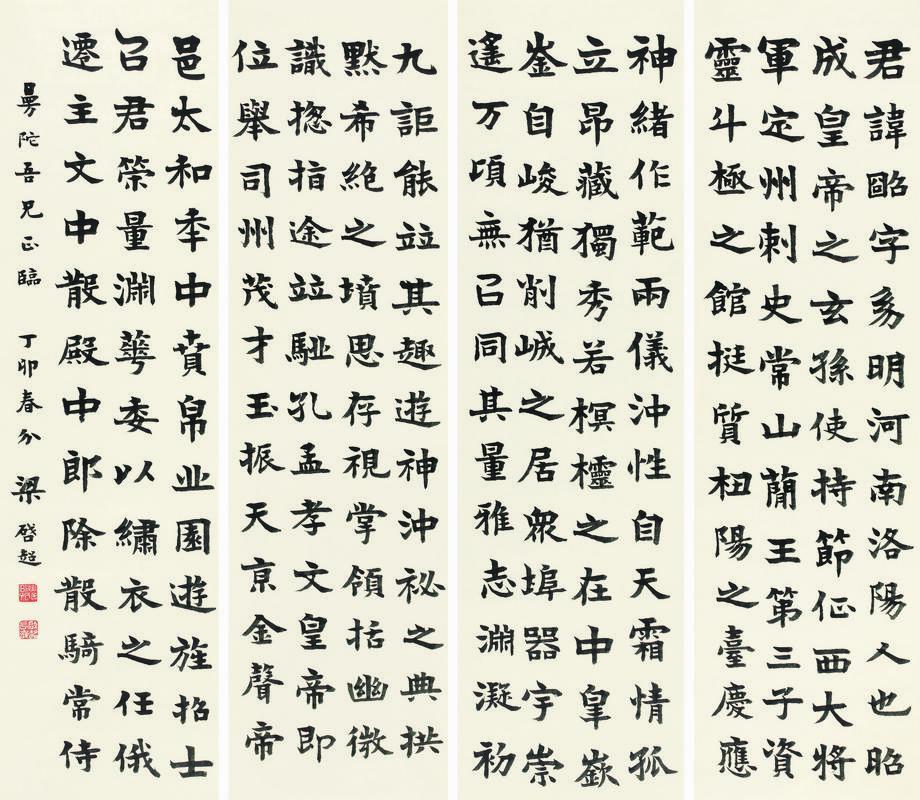 君諱昭字幼明河南洛陽人也昭
成皇帝之玄孫使持節征西大將
軍定州刺史常山蕳王第三子資
靈斗極之館挺質杻陽之臺慶應
神緒作範兩儀沖性自天霜情孤
立昂藏獨秀若榠櫺之在中皇嶔
崟自峻猶削峸之居衆埠器宇崇
遙万頃無已同其量雅志淵凝初
九詎能竝其趣遊神沖祕之典拱
默希絶之墳思存視掌領括幽微
識揔指途竝馳孔孟孝文皇帝即
位舉司州茂才玉振天京金聲帝
邑太和年中賁帛丘園遊旌招士
以君榮量淵華委以繡衣之任俄
遷主文中散殿中郎除散騎常侍
曼陀吾兄正臨 丁卯春分 梁啓超